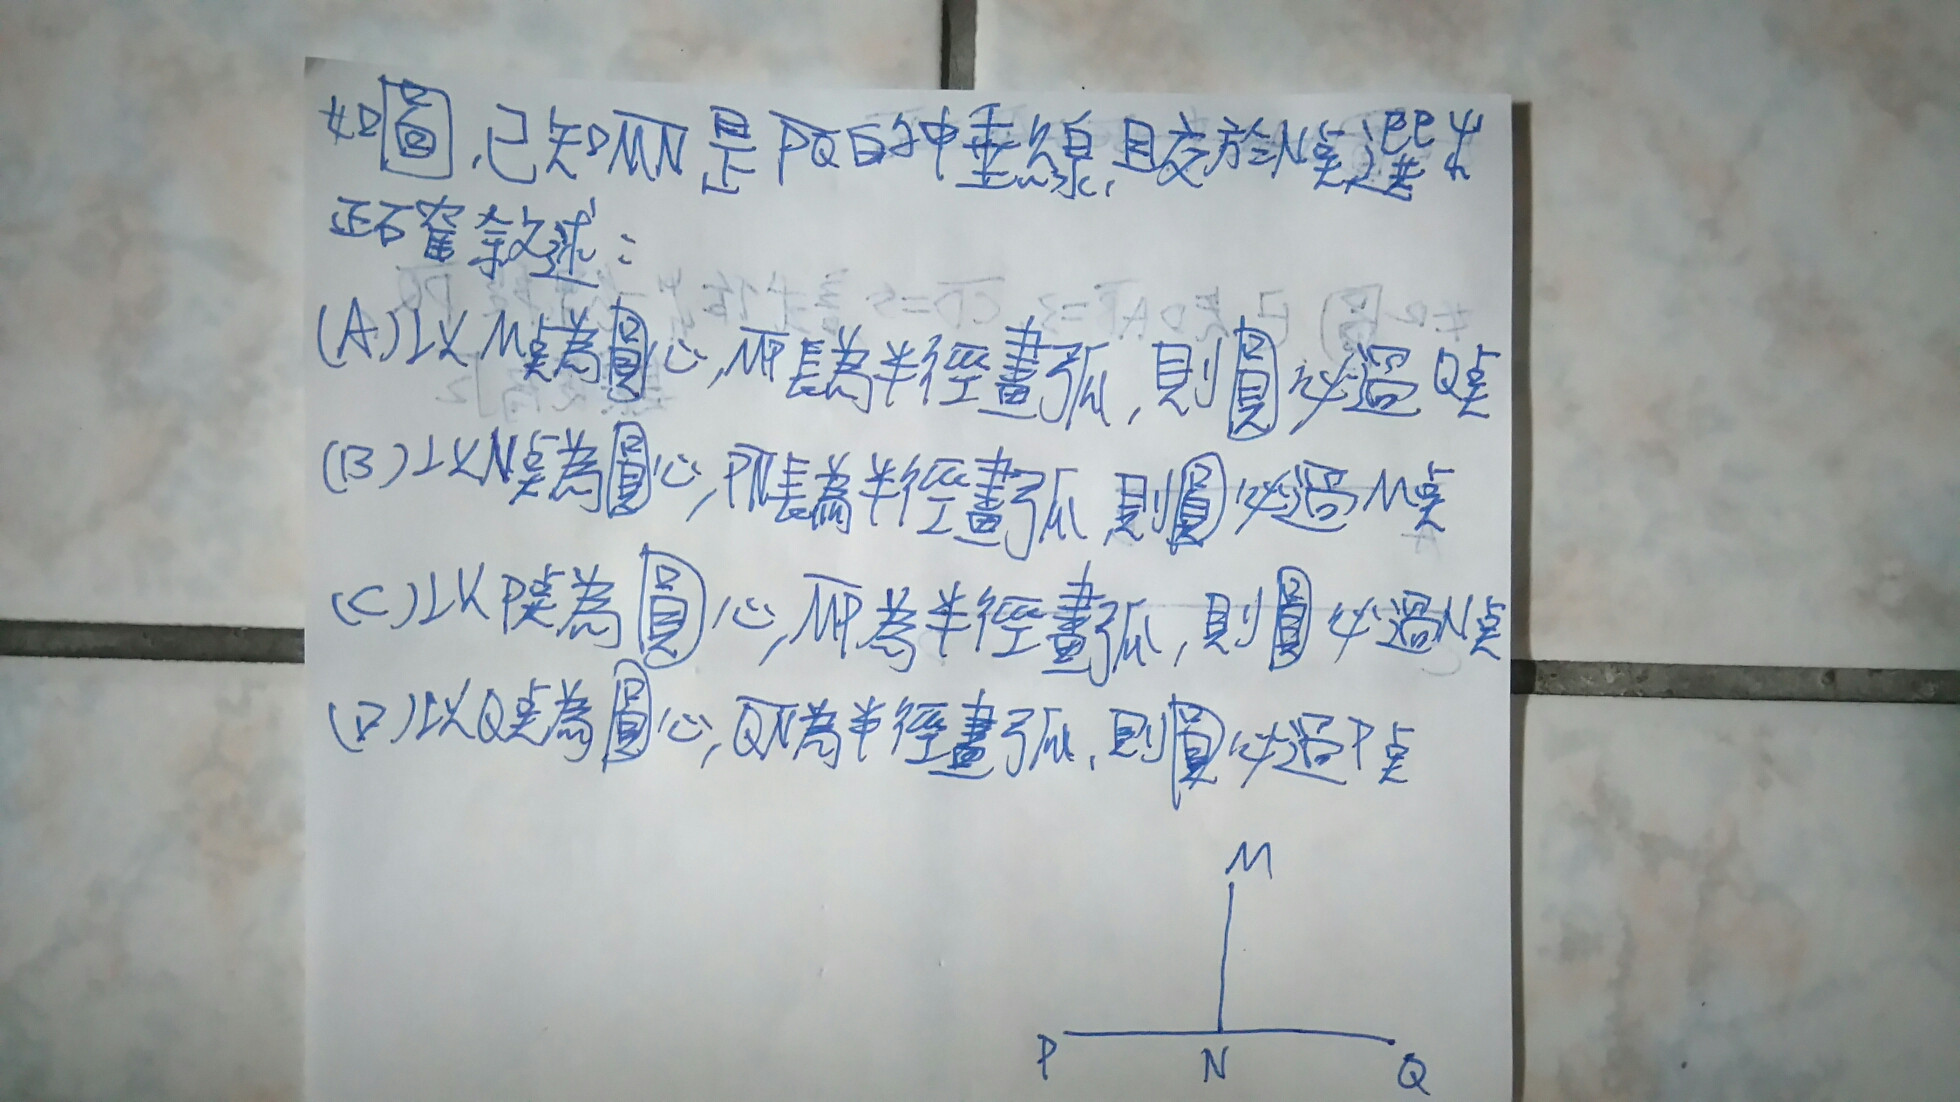 如圖,已知MN是PQ的中垂線,且交於N點選出
正確敘述:
(A)以M點為圓心,MP長為半徑畫弧,則圓必過Q點
(B)以N點為圓心,PN長為半徑畫弧,則圓必過M點
(C)以P點為圓心,MP為半徑畫弧,則圓必過N點
(D)以Q點為圓心,QN為半徑畫弧,則圓必過P點
M
P N Q